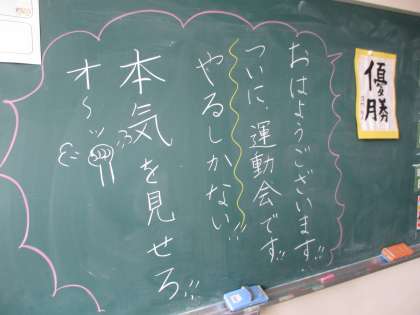 おはようございます!!
ついに、運動会です!!
やるしかない!!
本気を見せろ!!!
オ〜ッ
優勝